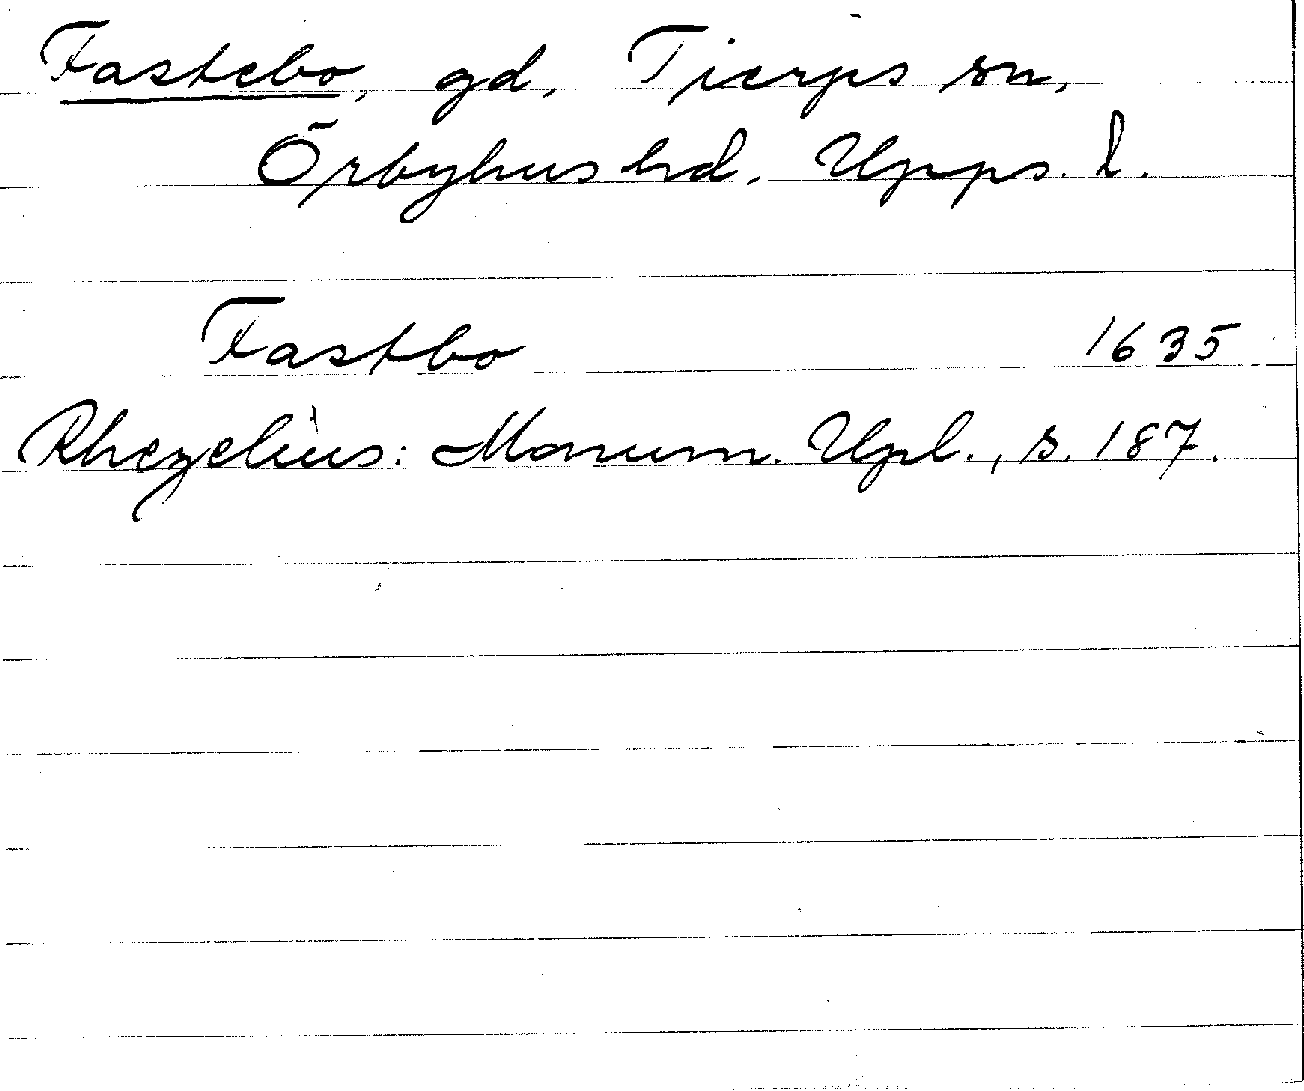 Fastebo, gd, Tierps sn,
Örbyhus hd. Upps. l.
Fastbo 1635
Rhezelius: Monum. Upl., s. 187.